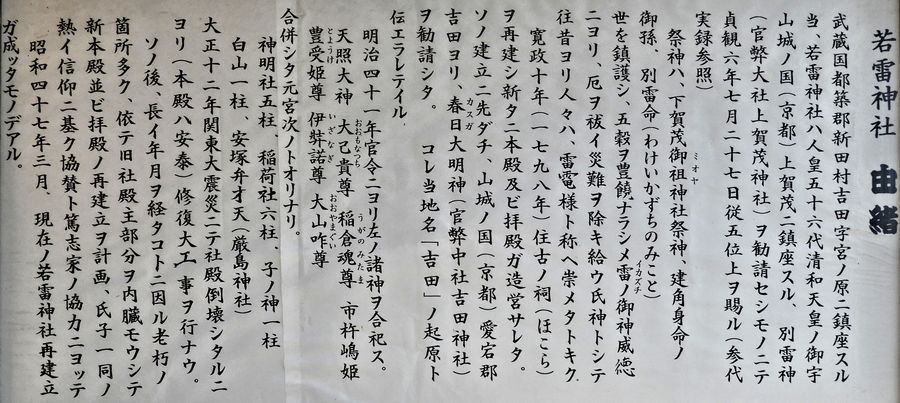 若雷神社 由緒
武蔵国都築郡新田村吉田字宮ノ原ニ鎮座スル
当、若雷神社ハ人皇五十六代清和天皇ノ御宇
山城ノ国(京都)上賀茂ニ鎮座スル、別雷神
(官弊大社上賀茂神社)ヲ勧請セシモノニテ
貞観六年七月二十七日従五位上ヲ賜ル(参代
実録参照)
祭神ハ、下賀茂御祖神社祭神、建角身命ノ
ミオヤ
御孫、別雷命(わけいかずちのみこと)
世を鎮護シ、五穀ヲ豊饒ナラシメ雷ノ御神威徳
イカズチ
ニヨリ、厄ヲ祓イ災難ヲ除キ給ウ氏神トシテ
往昔ヨリ人々ハ、雷電様ト称ヘ崇メタトキク
寛政十年(一七九八年)住古ノ祠(ほこら)
ヲ再建シ新タニ本殿及ビ拝殿ガ造営サレタ。
ソノ建立ニ先ダチ、山城ノ国(京都)愛宕郡
吉田ヨリ、春日大明神(官弊中社吉田神社)
カスガ
ヲ勧請シタ。 コレ当地名「吉田」ノ起原ト
伝エラレテイル
明治四十一年官令ニヨリ左ノ諸神ヲ合祀ス。
天照大神 大己貴尊 稲倉魂尊 市杵嶋姫
おおもなつち うがのみたま
豊受姫尊 伊弉諾尊 大山咋尊
とようけ いざなぎ おおやまくい
合併シタ元宮次ノトオリナリ。
神明社五柱、稲荷社六柱、子ノ神一柱
白山一柱、安塚弁才天(厳島神社)
大正十二年関東大震災ニテ社殿倒壊シタルニ
ヨリ(本殿ハ安泰)修復大工事ヲ行ナウ。
ソノ後、長イ年月ヲ経タコトニ因ル老朽ノ
箇所多ク、依テ旧社殿主部分ヲ内臓モウシテ
新本殿並ビ拝殿ノ再建立ヲ計画、氏子一同ノ
熱イ信仰ニ基ク協賛ト篤志家ノ協力ニヨッテ
昭和四十七年三月、現在ノ若雷神社再建立
ガ成ッタモノデアル。